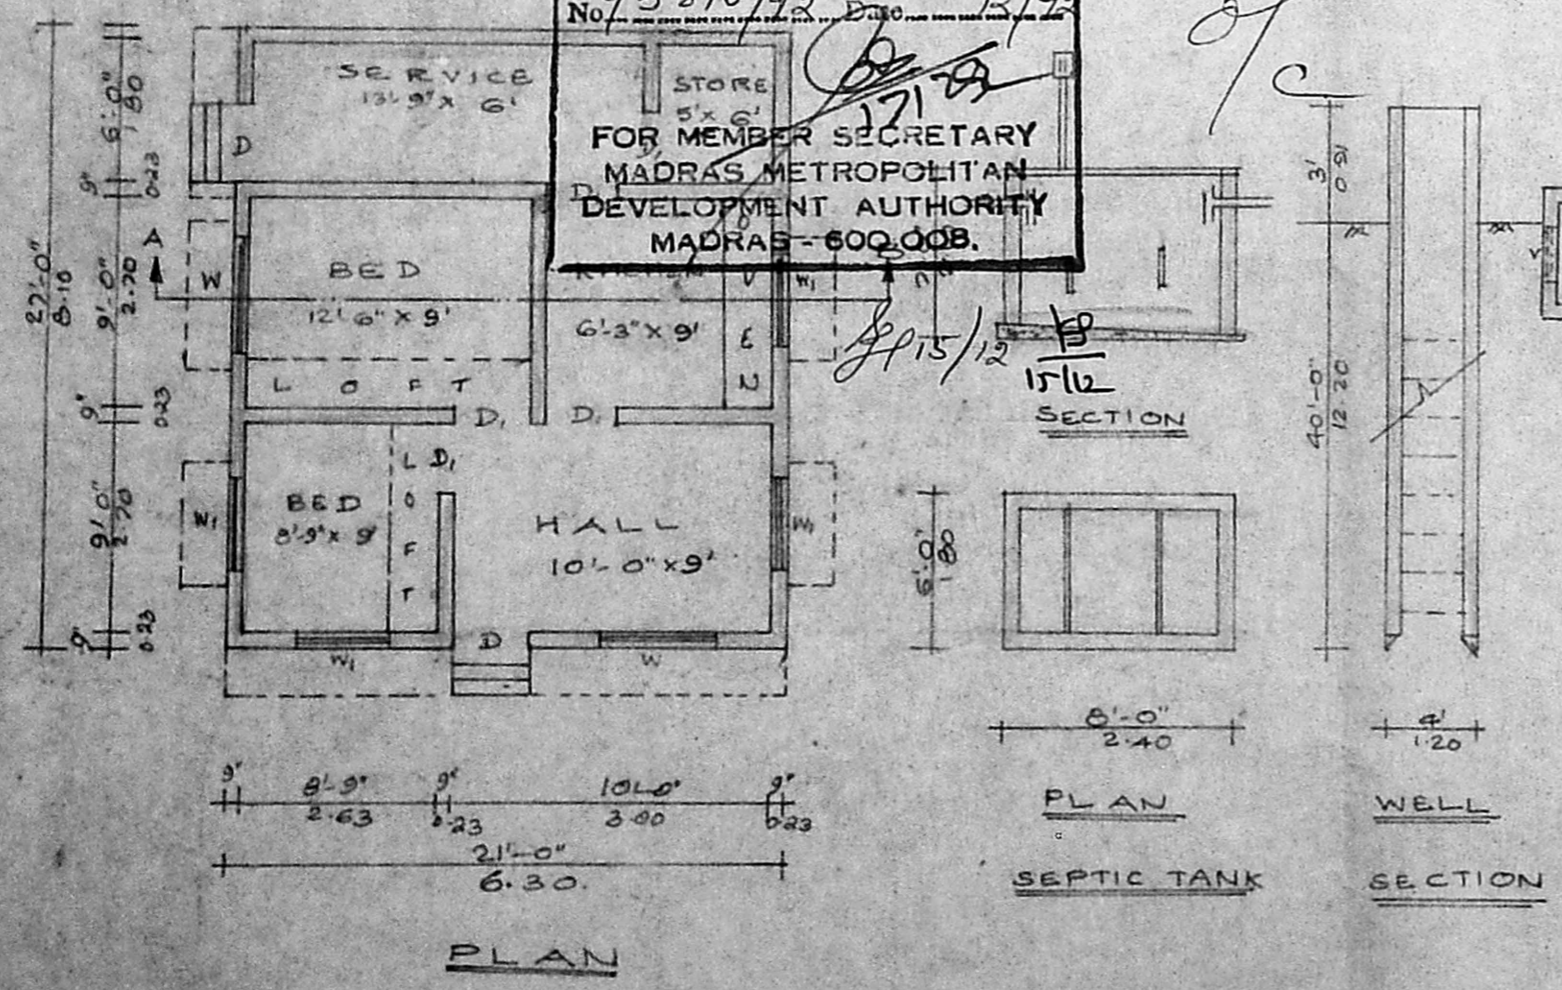 No. Date
FOR MEMBER SECRETARY
MADRAS METROPOLITAN
DEVELOPMENT AUTHORITY
MADRAS - 600 008.
SERVICE
13'-9" X 6'
STORE
5' X 6'
D
BED
12'-6" X 9'
LOFT
KITCHEN
6'-3" X 9'
VEN
A
W
W1
D1
D1
BED
8'-9" X 9'
LOFT
D1
HALL
10'-0" X 9'
W1
W1
W1
D
W
27'-0"
8.10
6'-0"
1.80
9"
0.23
9'-0"
2.70
9"
0.23
9'-0"
2.70
9"
0.23
9"
8'-9"
2.63
9"
0.23
10'-0"
3.00
9"
0.23
21'-0"
6.30
PLAN
15/12
15/12
SECTION
6'-0"
1.80
8'-0"
2.40
PLAN
SEPTIC TANK
3'
0.91
40'-0"
12.20
4'
1.20
WELL
SECTION